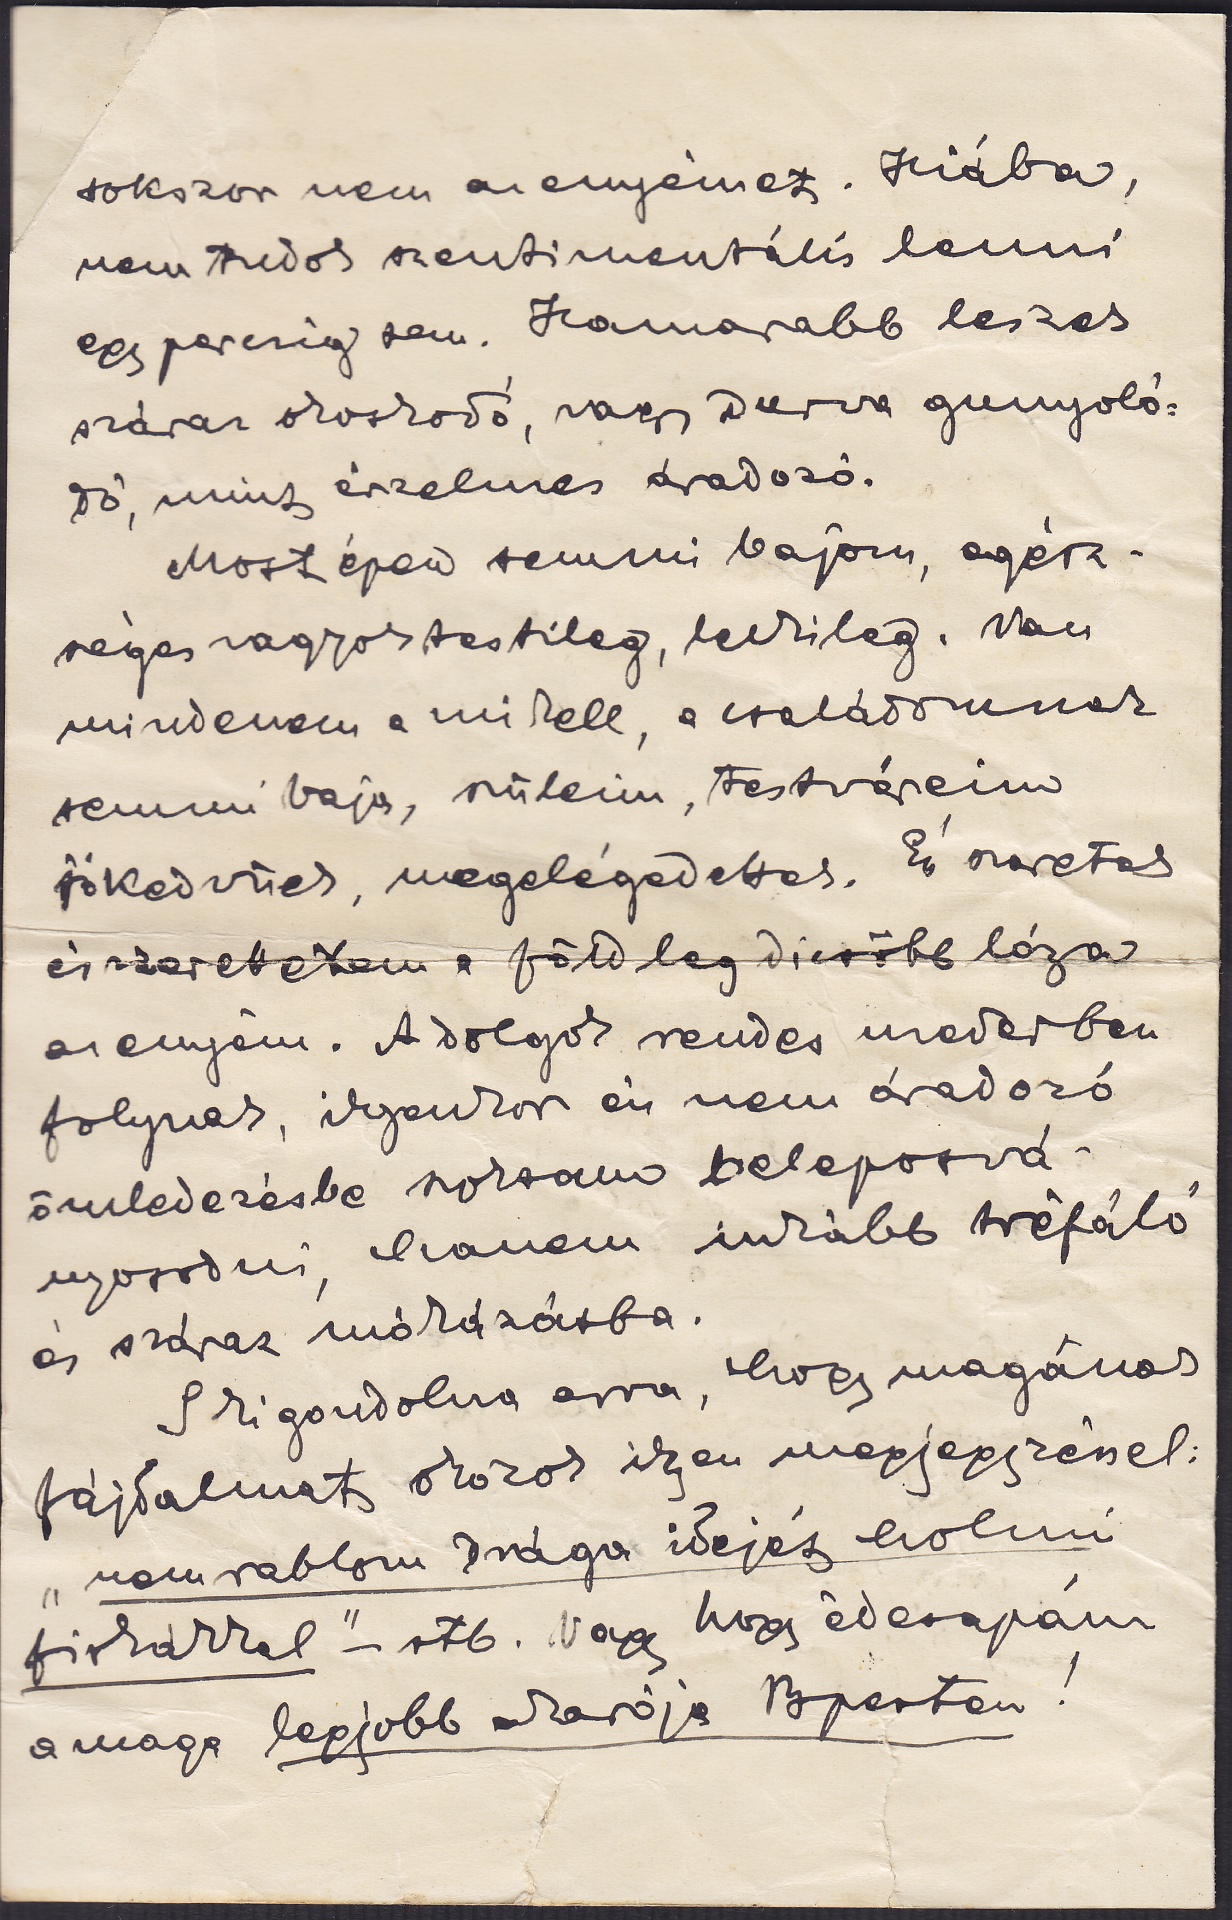 sokszor nem az enyémet. Hiába,
nem tudok szentimentális lenni
egy perczig sem. Hamarabb leszek
száraz okoskodó, vagy durva gunyoló-
dó, mint érzelmes áradozó.
Most épen semmi bajom, egész-
séges vagyok testileg, lelkileg. Van
mindenem a mi kell, a családomnak
semmi baja, szüleim, testvéreim
jókedvüek, megelégedettek. Én szeretek
és szeretetem a föld leg dicsőbb lénya
az enyém. A dolgok rendes mederben
folynak, ilyenkor én nem áradozó
ömledezésbe szoktam beleposvá-
nyosodni, hanem inkább tréfáló
és száraz mókázásba.
S ki gondolna arra, hogy magának
fájdalmat okozok ilyen megjegyzéssel:
„nem rablom drága idejét holmi
firkákkal" – stb. Vagy hogy édesapám
a maga legjobb akarója Bpesten!